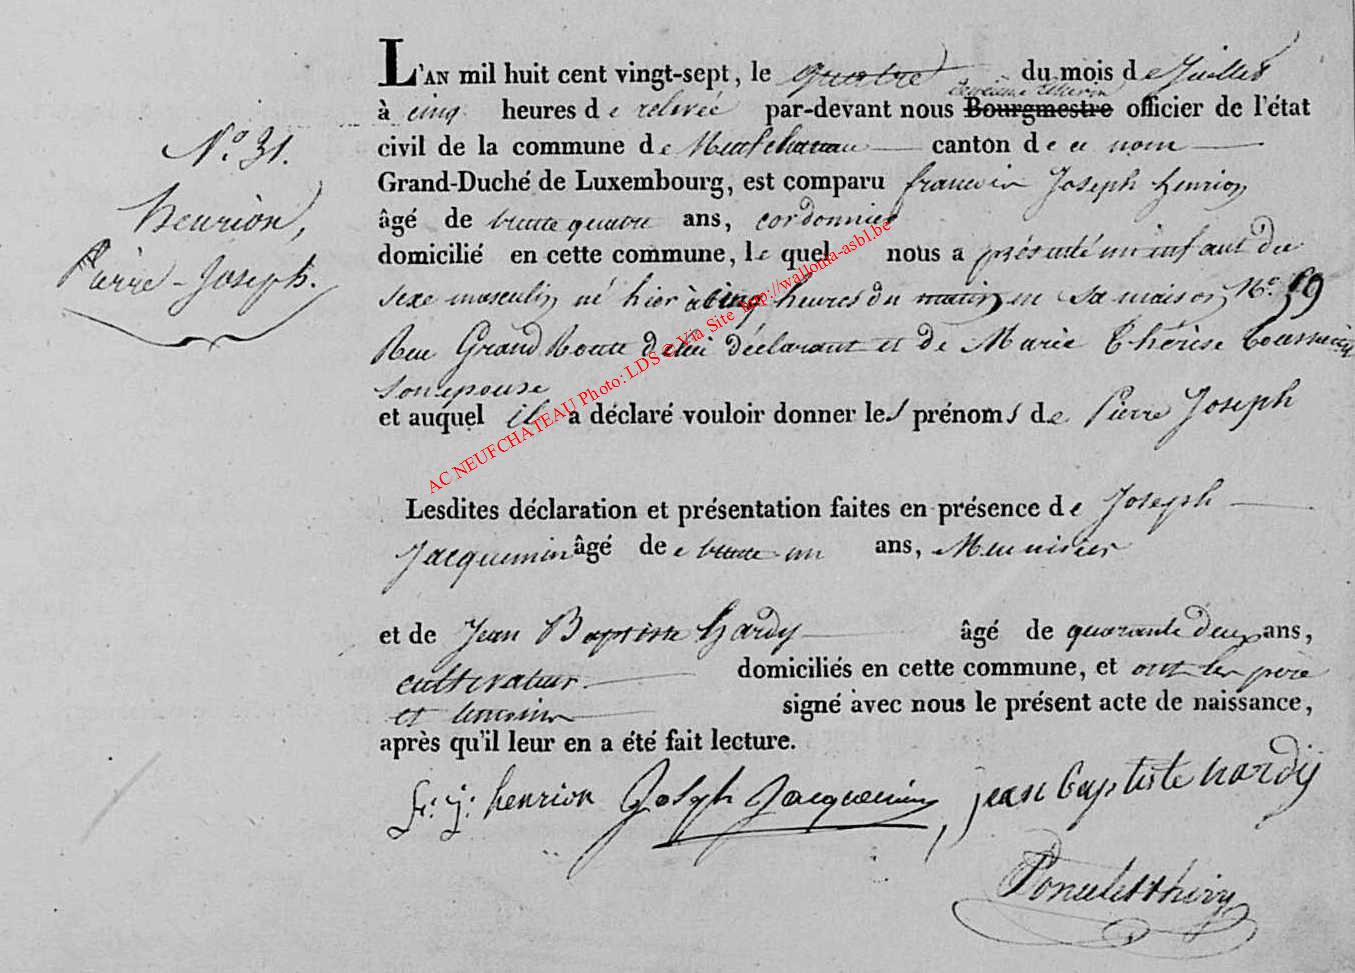 N.º 31.
henrion,
Pierre-Joseph.
L'AN mil huit cent vingt-sept, le quatre du mois de Juillet
deuxième Echevin
à cinq heures de relevée par-devant nous Bourgmestre officier de l'état
civil de la commune de Neufchateau canton de ce nom
Grand-Duché de Luxembourg, est comparu francois Joseph henrion
âgé de trente quatre ans, cordonnier
domicilié en cette commune, le quel nous a présenté un enfant du
sexe masculin né hier à cinq heures du matin en sa maison, Nº. 59
Rue Grand Route de lui déclarant et de Marie Thérèse Toussaint
son epouse
et auquel il a déclaré vouloir donner les prénoms de Pierre Joseph
Lesdites déclaration et présentation faites en présence de Joseph
Jacquemin âgé de trente un ans, Meunier
et de Jean Baptiste hardy âgé de quarante deux ans,
cultivateur domiciliés en cette commune, et ont les père
et temoins signé avec nous le présent acte de naissance,
après qu'il leur en a été fait lecture.
fr: j: henrion Joseph Jacquemin, jean baptiste hardÿ
Poncelet thiry
AC NEUFCHATEAU Photo: LDS © Via Site http://wallonia-asbl.be